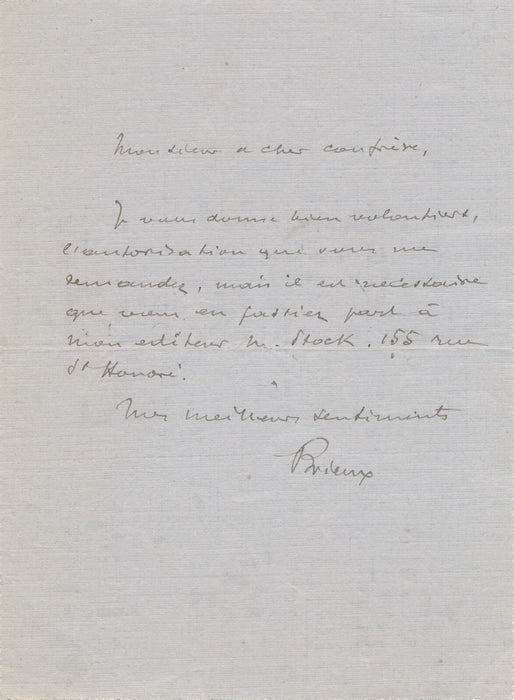 Monsieur et cher confrère,
Je vous donne bien volontiers,
l'autorisation que vous me
demandez, mais il est nécessaire
que vous en fassiez part à
mon éditeur M. Stock. 155 rue
St Honoré.
Mes meilleurs sentiments
Brieux